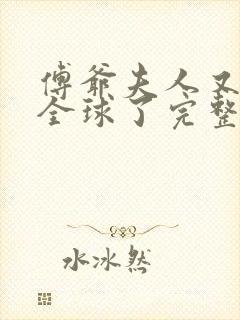 傅爷夫人又
全球了完整
水冰然